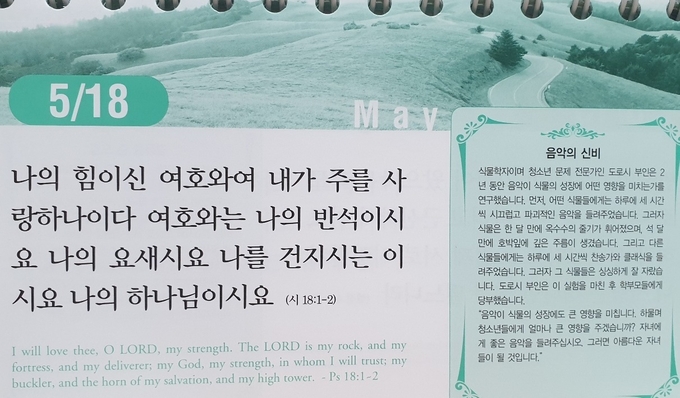 5/18
May
나의 힘이신 여호와여 내가 주를 사
랑하나이다 여호와는 나의 반석이시
요 나의 요새시요 나를 건지시는 이
시요 나의 하나님이시요 (시 18:1-2)
I will love thee, O LORD, my strength. The LORD is my rock, and my
fortress, and my deliverer; my God, my strength, in whom I will trust; my
buckler, and the horn of my salvation, and my high tower. - Ps 18:1-2
음악의 신비
식물학자이며 청소년 문제 전문가인 도로시 부인은 2
년 동안 음악이 식물의 성장에 어떤 영향을 미치는가를
연구했습니다. 먼저, 어떤 식물들에게는 하루에 세 시간
씩 시끄럽고 파괴적인 음악을 들려주었습니다. 그러자
식물은 한 달 만에 옥수수의 줄기가 휘어졌으며, 석 달
만에 호박잎에 깊은 주름이 생겼습니다. 그리고 다른
식물들에게는 하루에 세 시간씩 찬송가와 클래식을 들
려주었습니다. 그러자 그 식물들은 싱싱하게 잘 자랐습
니다. 도로시 부인은 이 실험을 마친 후 학부모들에게
당부했습니다.
"음악이 식물의 성장에도 큰 영향을 미칩니다. 하물며
청소년들에게 얼마나 큰 영향을 주겠습니까? 자녀에
게 좋은 음악을 들려주십시오. 그러면 아름다운 자녀
들이 될 것입니다."